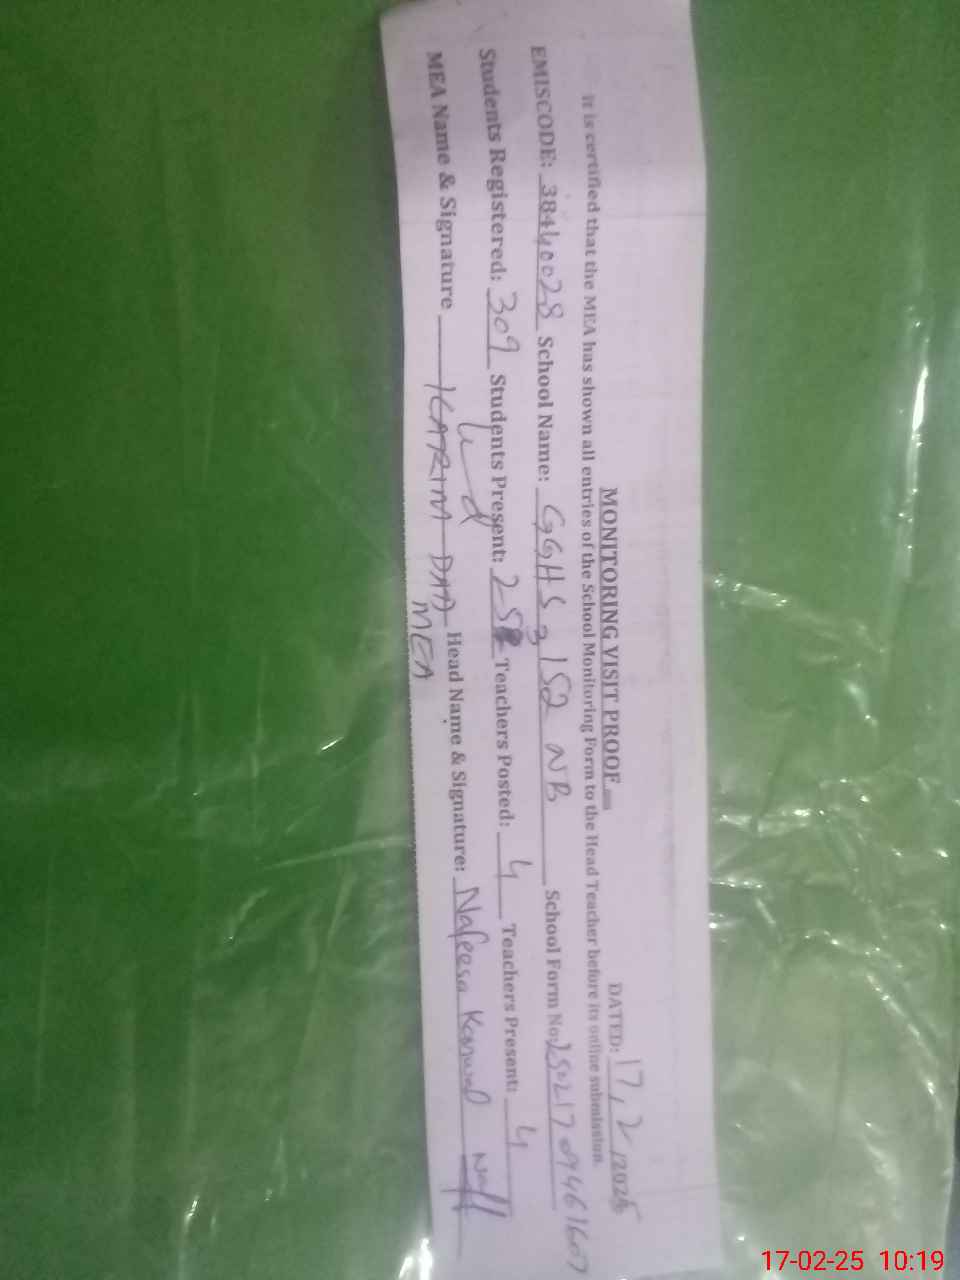 MONITORING VISIT PROOF
DATED: 17, 2, 2025
It is certified that the MEA has shown all entries of the School Monitoring Form to the Head Teacher before its online submission.
EMISCODE: 38440028 School Name: GGHS 152 NB School Form No: 25021709461607
Students Registered: 309 Students Present: Teachers Posted: 4 Teachers Present: 4
MEA Name & Signature KARIM DAD Head Name & Signature: Nafeesa Kanwal
MEA
17-02-25 10:19